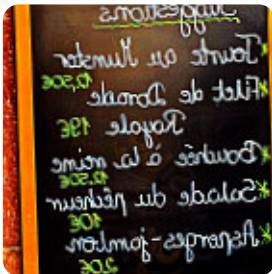 Suggestions
*Tourte au Munster
12,50€
*Filet de Dorade
Royale 19€
*Bouchée à la reine
12,50€
*Salade du pêcheur
10€
*Asperges-jambon
20€